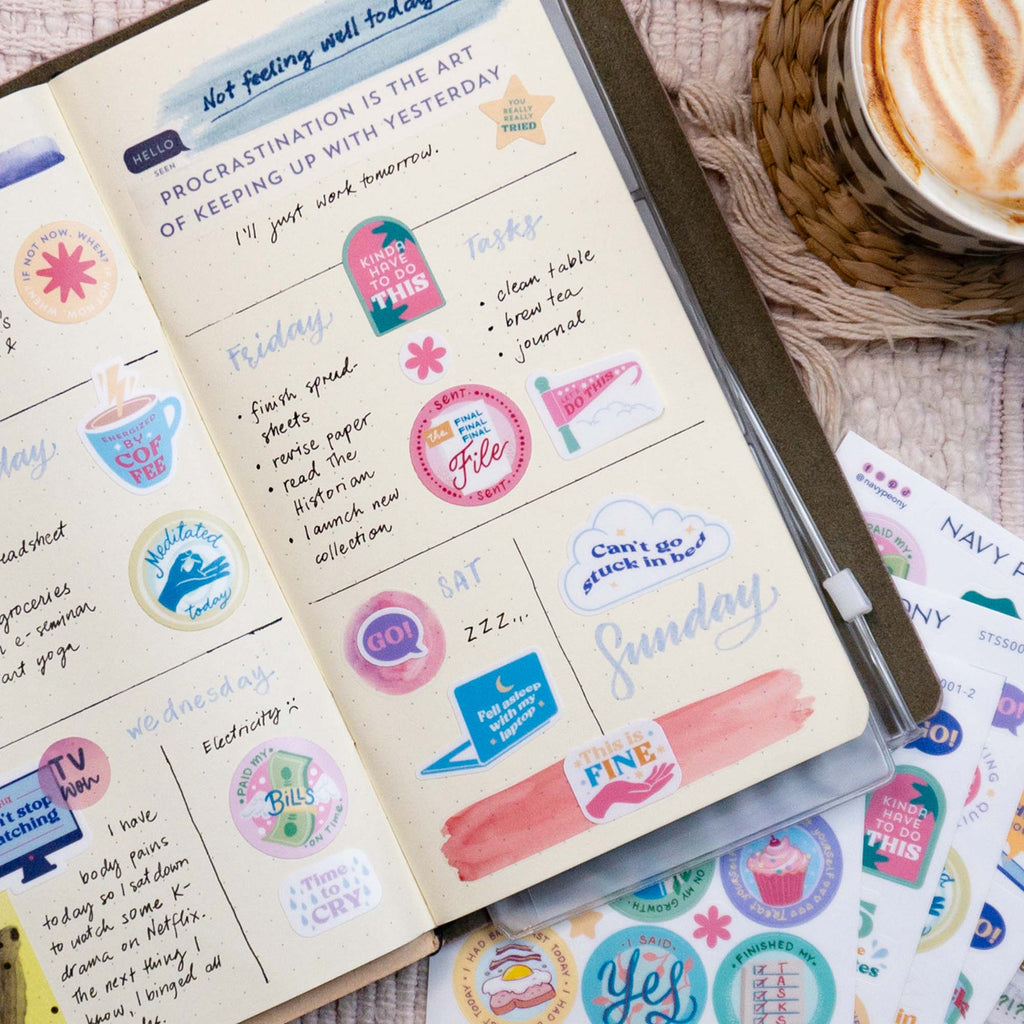 Not feeling well today
HELLO
SEEN
PROCRASTINATION IS THE ART
OF KEEPING UP WITH YESTERDAY
YOU
REALLY
REALLY
TRIED
I'll just work tomorrow.
KINDA
HAVE
TO DO
THIS
Tasks
• clean table
• brew tea
• journal
Friday
• finish spread-
sheets
• revise paper
• read the
Historian
• launch new
collection
SENT
the FINAL
FINAL
FINAL
File
SENT
DO THIS
SAT
GO!
zzz...
Fell asleep
with my
laptop
Can't go
stuck in bed
Sunday
This is
FINE
IF NOT NOW, WHEN? IF NOT NOW, WHEN?
&
ENERGIZED
BY
COF
FEE
Meditated
today
groceries
e-seminar
yoga
wednesday
TV
won
Electricity :(
PAID MY
BILLS
ON TIME
Time
to
CRY
I have
body pains
today so I sat down
to watch some K-
drama on Netflix.
The next thing I
know, I binged all
@navypeony
NAVY
PAID MY
GO!
KINDA
HAVE
TO DO
THIS
ON MY GROWTH
TREAT YOURSELF
I HAD BREAKFAST TODAY
I SAID
Yes
FINISHED MY
TASKS